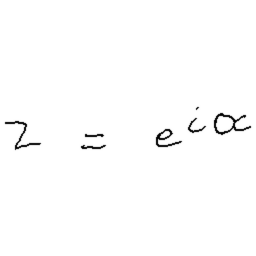 z = e^{i\alpha}